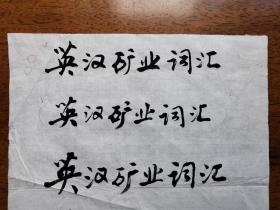 英汉矿业词汇
英汉矿业词汇
英汉矿业词汇